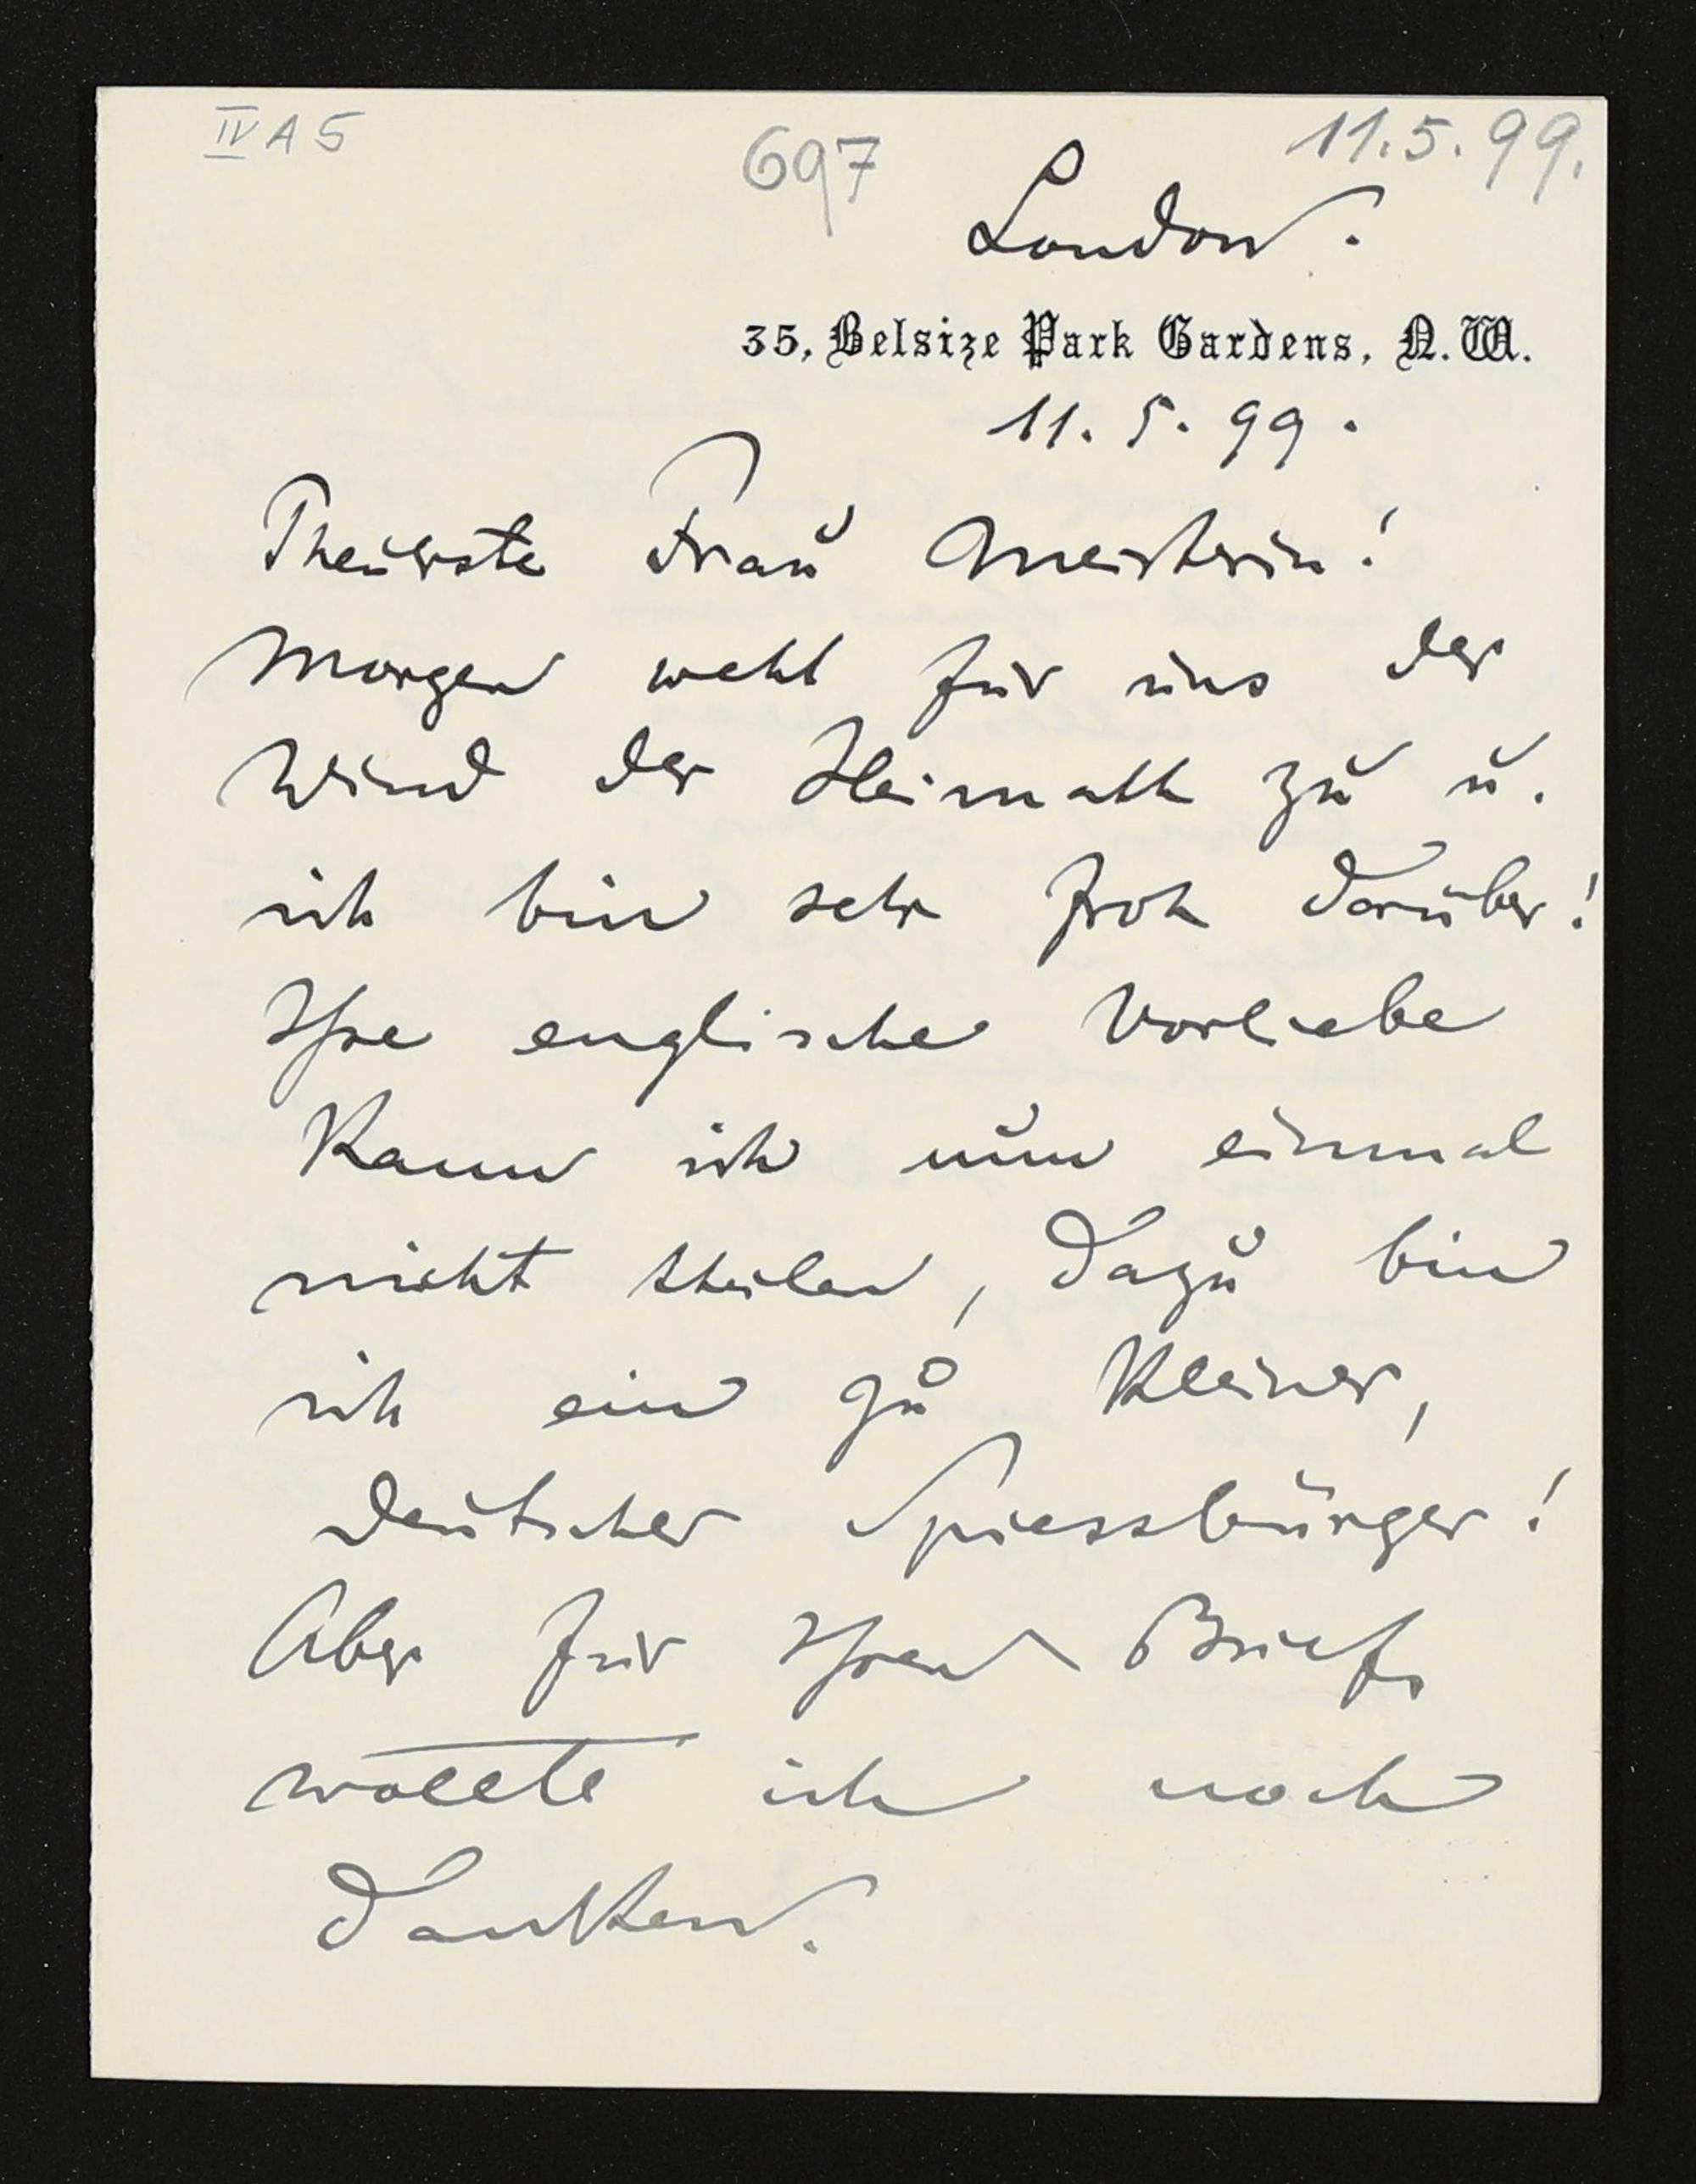 IV A 5
697
11.5.99.
London.
35, Belsize Park Gardens, N.W.
11. 5. 99.
Theuerste Frau Meisterin!
Morgen weht für uns der
Wind der Heimath zu u.
ich bin sehr froh darüber!
Ihre englische Vorliebe
kann ich nun einmal
nicht theilen, dazu bin
ich ein zu kleiner,
deutscher Spiessbürger!
Aber für Ihren Brief
wollte ich noch
danken.